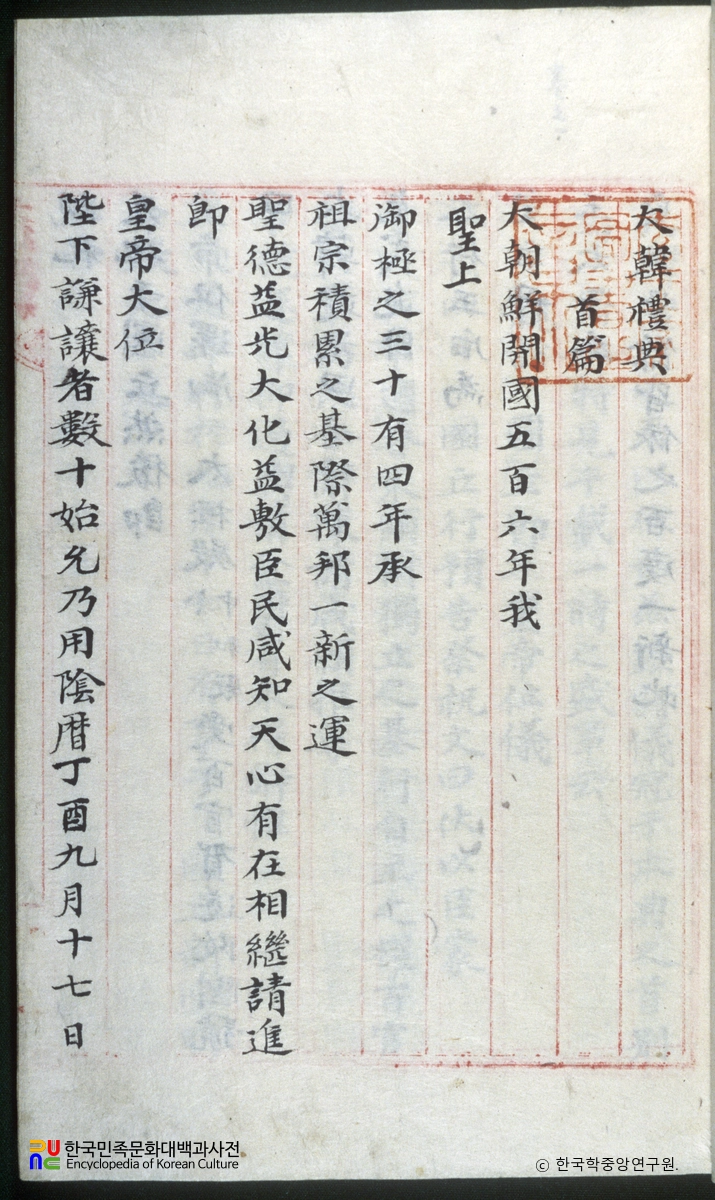 大韓禮典
首篇
大朝鮮開國五百六年我
聖上
御極之三十有四年承
祖宗積累之基際萬邦一新之運
聖德益光大化益敷臣民咸知天心有在相繼請進
卽
皇帝大位
陛下謙讓者數十始允乃用陰曆丁酉九月十七日
한국민족문화대백과사전
Encyclopedia of Korean Culture
ⓒ 한국학중앙연구원.